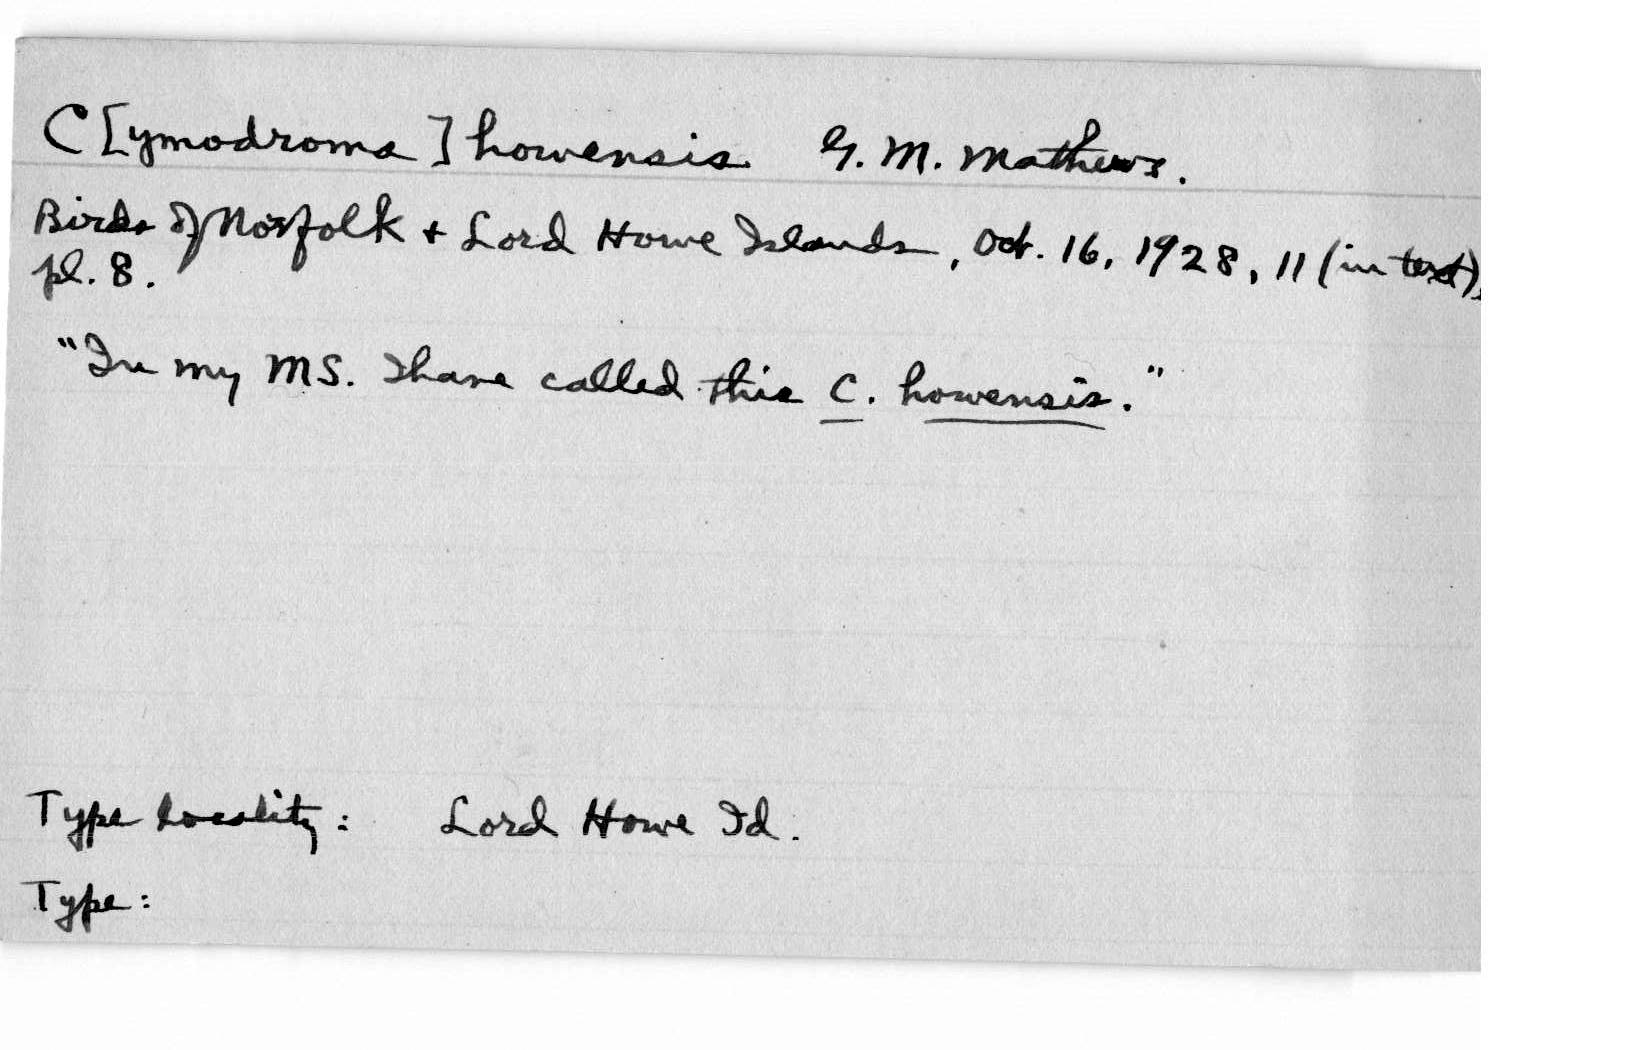 C[ymodroma] howensis G. M. Mathews.
Birds of Norfolk + Lord Howe Islands, Oct. 16, 1928, 11 (in text),
pl. 8.
"In my MS. I have called this C. howensis."
Type locality: Lord Howe Id.
Type: